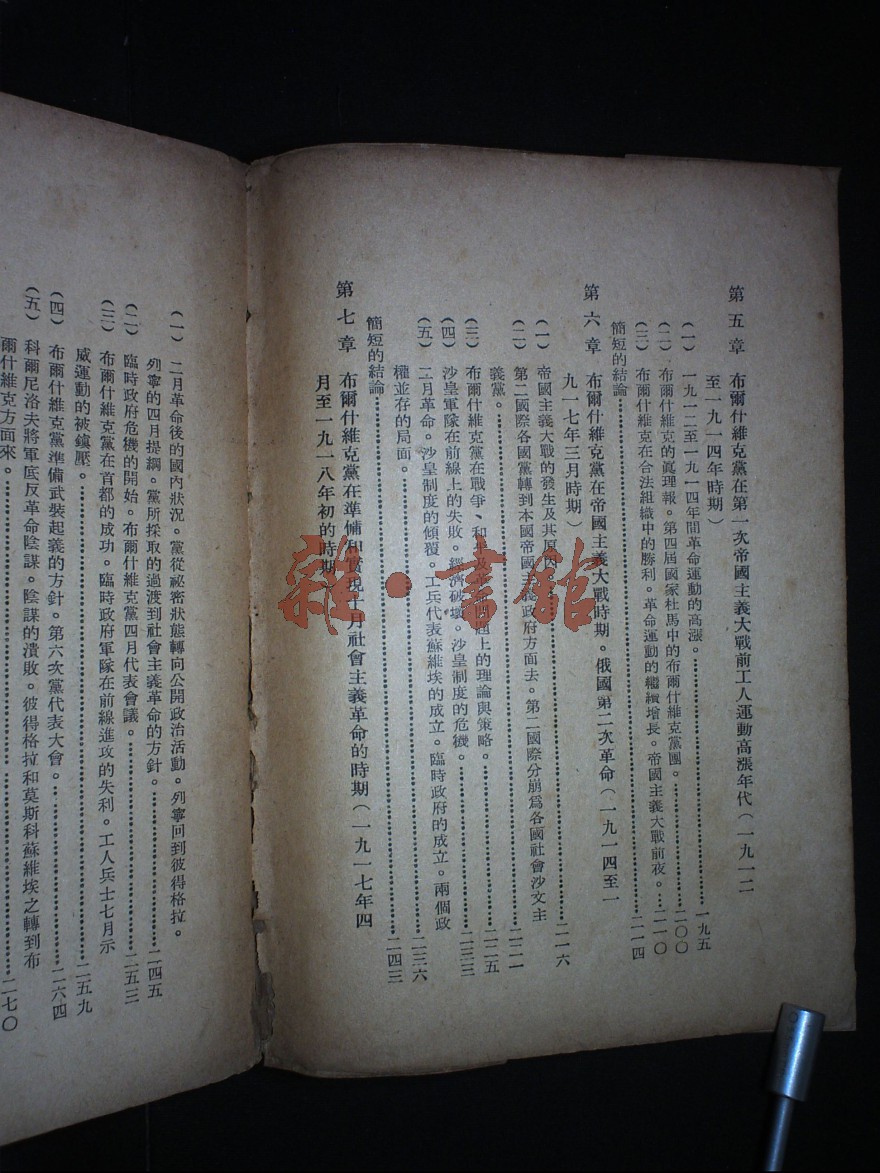 第五章 布爾什維克黨在第一次帝國主義大戰前工人運動高漲年代(一九一二
至一九一四年時期)
(一) 一九一二至一九一四年間革命運動的高漲。……一九五
(二) 布爾什維克的眞理報。第四屆國家杜馬中的布爾什維克黨團。……二〇〇
(三) 布爾什維克在合法組織中的勝利。革命運動的繼續增長。帝國主義大戰前夜。……二一〇
簡短的結論……二一四
第六章 布爾什維克黨在帝國主義大戰時期。俄國第二次革命(一九一四至一
九一七年三月時期)
(一) 帝國主義大戰的發生及其原因。……二一六
(二) 第二國際各國黨轉到本國帝國主義政府方面去。第二國際分崩爲各國社會沙文主
義黨。……二二一
(三) 布爾什維克黨在戰爭、和平及革命問題上的理論與策略。……二二五
(四) 沙皇軍隊在前線上的失敗。經濟破壞。沙皇制度的危機。……二三三
(五) 二月革命。沙皇制度的傾覆。工兵代表蘇維埃的成立。臨時政府的成立。兩個政
權並存的局面。……二三六
簡短的結論……二四三
第七章 布爾什維克黨在準備和實現十月社會主義革命的時期(一九一七年四
月至一九一八年初的時期)
(一) 二月革命後的國內狀況。黨從祕密狀態轉向公開政治活動。列寧回到彼得格拉。
列寧的四月提綱。黨所採取的過渡到社會主義革命的方針。……二四五
(二) 臨時政府危機的開始。布爾什維克黨四月代表會議。……二五三
(三) 布爾什維克黨在首都的成功。臨時政府軍隊在前線進攻的失利。工人兵士七月示
威運動的被鎮壓。……二五九
(四) 布爾什維克黨準備武裝起義的方針。第六次黨代表大會。……二六四
(五) 科爾尼洛夫將軍底反革命陰謀。陰謀的潰敗。彼得格拉和莫斯科蘇維埃之轉到布
爾什維克方面來。……二七〇
雜·書館